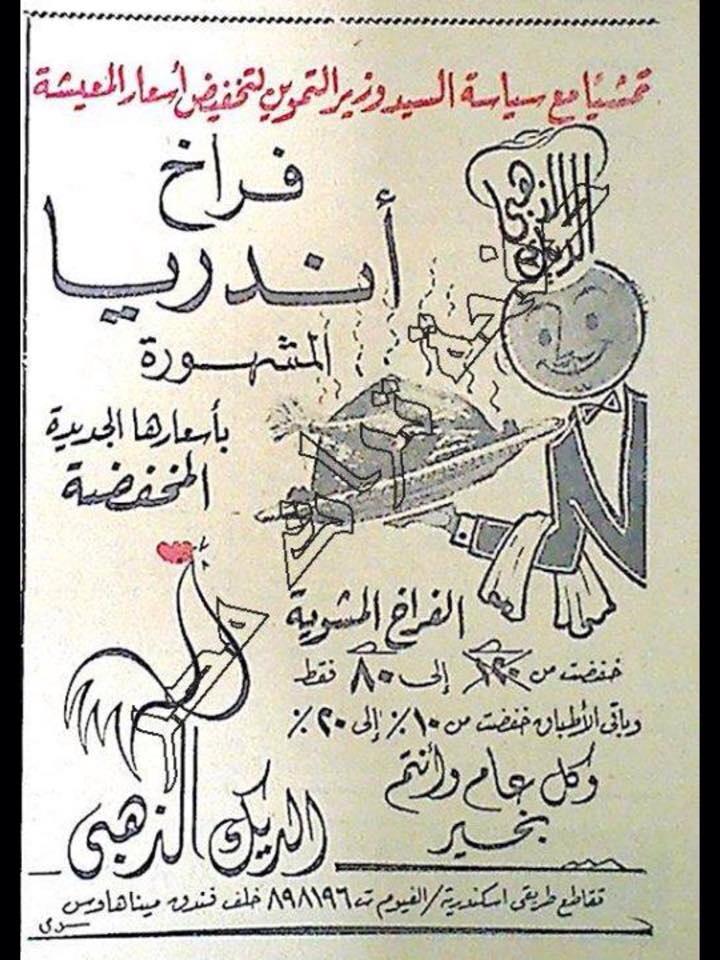 تمشيًا مع سياسة السيد وزير التموين لتخفيض أسعار المعيشة
الديك الذهبى
فراخ
أندريا
المشهورة
بأسعارها الجديدة
المنخفضة
الفراخ المشوية
خفضت من ١٢٠ إلى ٨٠ فقط
وباقى الأطباق خفضت من ١٠٪ إلى ٢٠٪
وكل عام وأنتم
بخير
الديك الذهبى
تقاطع طريقى اسكندرية/الفيوم ت ٨٩٨١٩٦ خلف فندق ميناهاوس